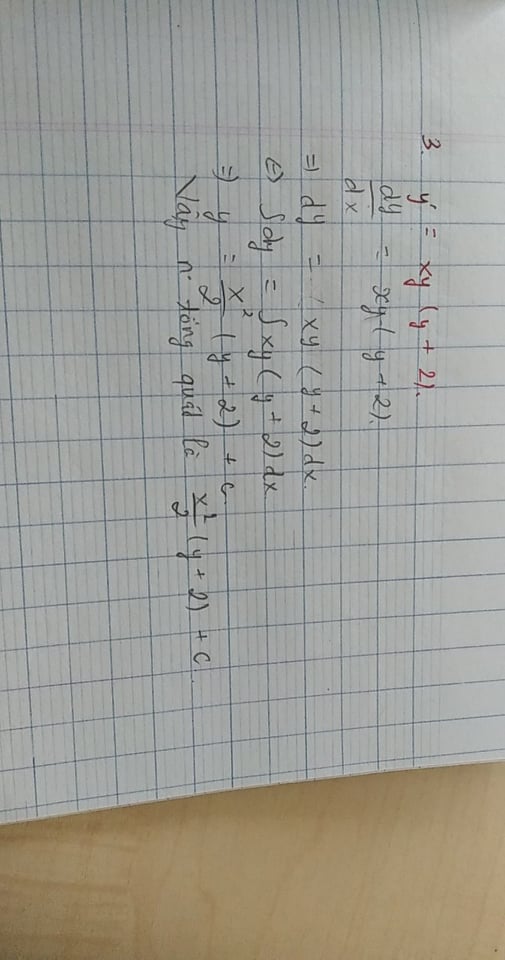 3. y' = xy (y + 2).
dy/dx = xy (y + 2).
=> dy = xy (y + 2) dx.
<=> ∫dy = ∫xy (y + 2) dx
=> y = x²/2 (y + 2) + c.
Vậy n. tổng quát là x²/2 (y + 2) + C.